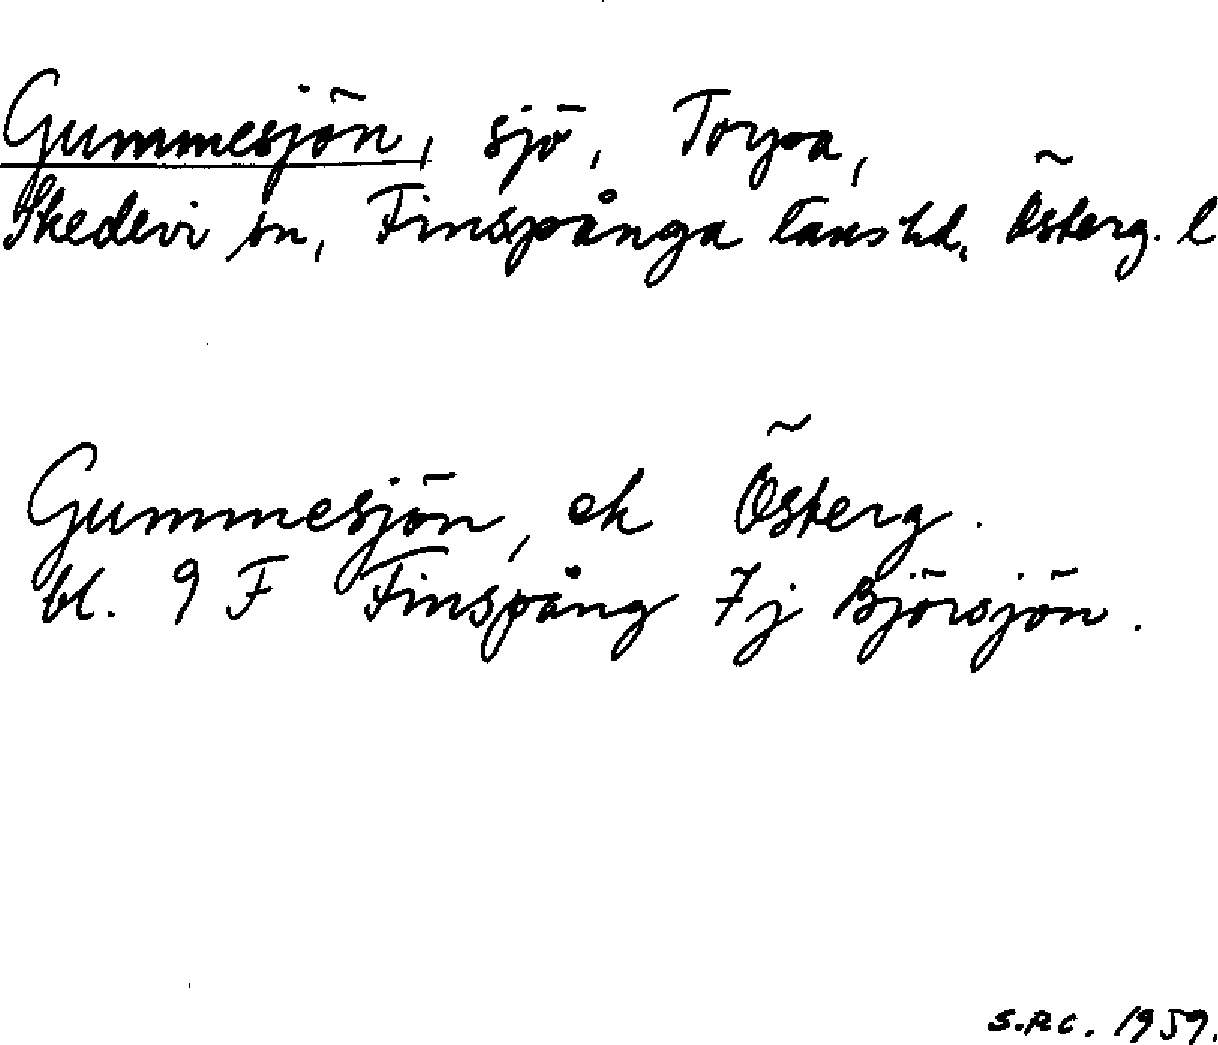 Gummesjön, sjö, Torpa,
Skedevi sn, Finspånga läns hd, Österg. l
Gummesjön, ek Österg.
bl. 9 F Finspång 7j Björsjön.
S.R.C. 1959.